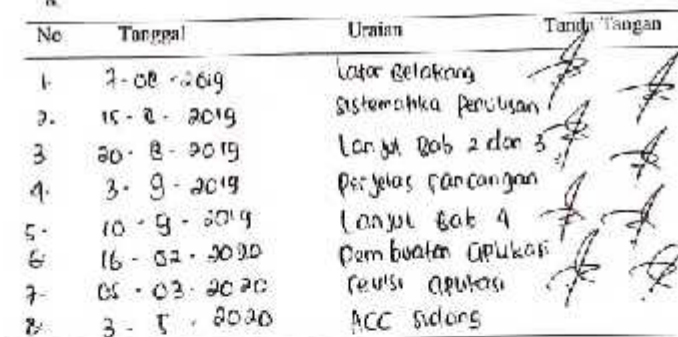 No Tanggal Uraian Tanda Tangan
1. 7-08-2019 Latar Belakang
2. 15-8-2019 Sistematika Penulisan
3 20-8-2019 Lanjut Bab 2 dan 3
4. 3-9-2019 Perjelas rancangan
5. 10-9-2019 Lanjut Bab 4
6. 16-02-2020 Pembuatan aplikasi
7. 05-03-2020 revisi aplikasi
8. 3-5-2020 ACC Sidang